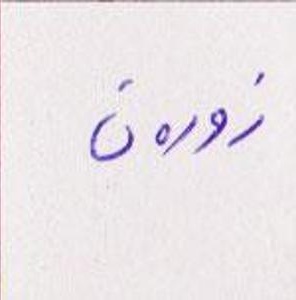 زورەن